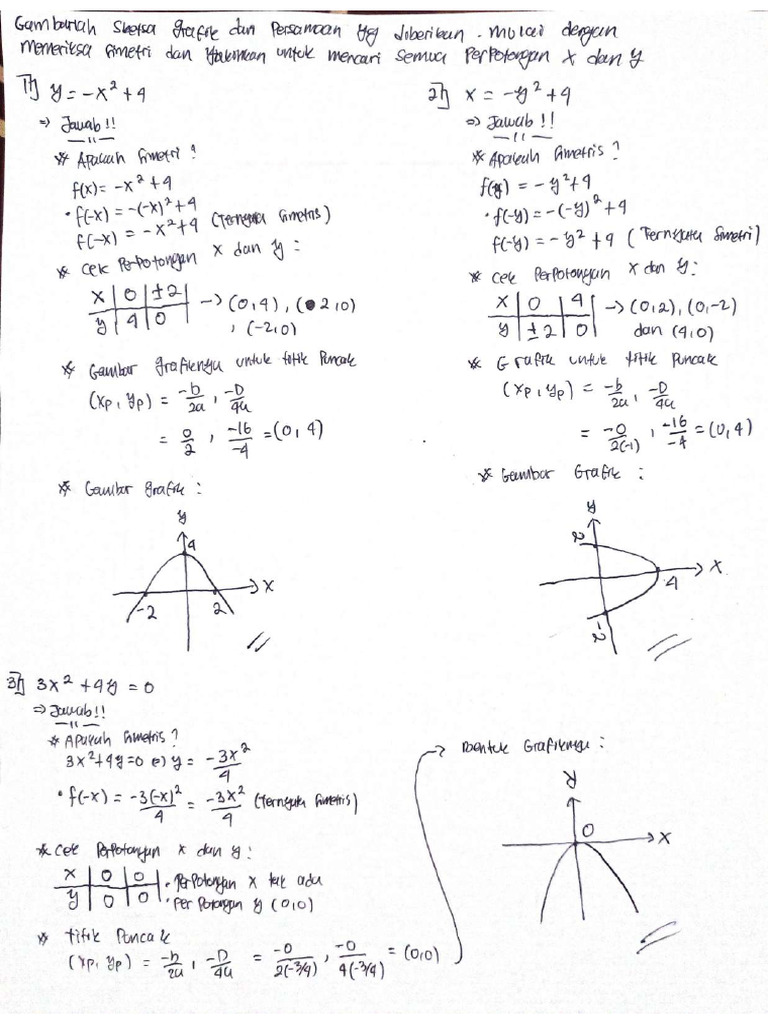 Gambarlah sketsa grafik dan Persamaan yg diberikan. mulai dengan
memeriksa simetri dan yakinkan untuk mencari semua Perpotongan x dan y
1) y = -x² + 4
⇒ Jawab!!
* Apakah simetri?
f(x) = -x² + 4
• f(-x) = -(-x)² + 4
f(-x) = -x² + 4 (Ternyata simetris)
* Cek Perpotongan x dan y :
x | 0 | ±2 |
y | 4 | 0 | → (0,4), (2,0)
, (-2,0)
* Gambar grafiknya untuk titik Puncak
(xp, yp) = -b/2a, -D/4a
= 0/2, -16/-4 = (0,4)
* Gambar grafik :
y
4
x
-2
2
2) x = -y² + 4
⇒ Jawab!!
* Apakah simetris?
f(y) = -y² + 4
• f(-y) = -(-y)² + 4
f(-y) = -y² + 4 (Ternyata simetri)
* Cek Perpotongan x dan y :
x | 0 | 4 | → (0,2), (0,-2)
y | ±2 | 0 | dan (4,0)
* Grafik untuk titik Puncak
(xp, yp) = -b/2a, -D/4a
= -0/2(-1), -16/-4 = (0,4)
* Gambar Grafik :
y
2
x
4
-2
3) 3x² + 4y = 0
⇒ Jawab!!
* Apakah simetris?
3x² + 4y = 0 ⇔ y = -3x²/4
• f(-x) = -3(-x)²/4 = -3x²/4 (Ternyata simetris)
* Cek Perpotongan x dan y :
x | 0 | 0 | • Perpotongan x tak ada
y | 0 | 0 | • Perpotongan y (0,0)
* Titik Puncak
(xp, yp) = -b/2a, -D/4a = -0/2(-3/4), -0/4(-3/4) = (0,0)
→ Bentuk Grafiknya :
y
0
x